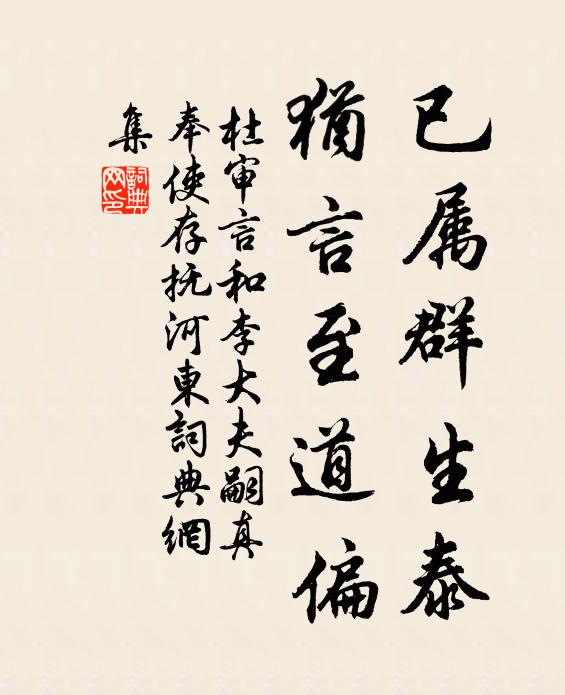 已属群生泰
猶言至道偏
杜审言和李大夫嗣真
奉使存抚河東詞典網
集
詞典
网印